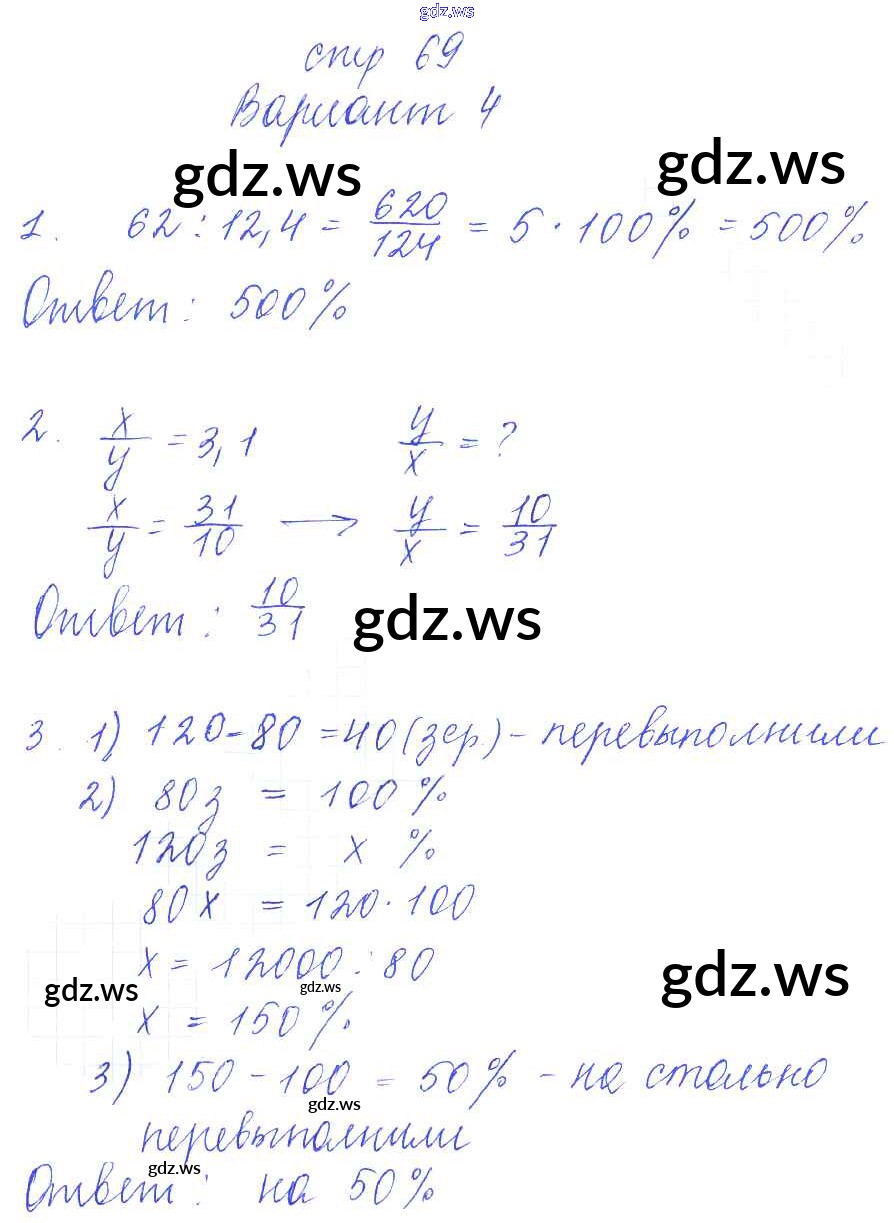 gdz.ws
стр 69
Вариант 4
gdz.ws gdz.ws
1. 62 : 12,4 = 620/124 = 5 · 100% = 500%
Ответ: 500%
2. x/y = 3,1 y/x = ?
x/y = 31/10 → y/x = 10/31
Ответ: 10/31
gdz.ws
3. 1) 120 - 80 = 40 (зер.) - перевыполнили
2) 80з = 100%
120з = x %
80x = 120 · 100
x = 12000 : 80
gdz.ws gdz.ws gdz.ws
x = 150%
3) 150 - 100 = 50% - на столько
gdz.ws
перевыполнили
gdz.ws
Ответ: на 50%